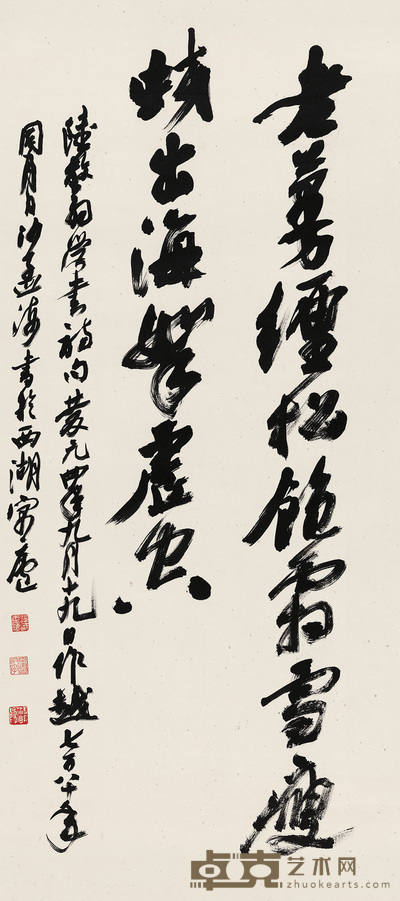 老蔓缠松饱霜雪瘦
蛟出海拏虚空
陆放翁学书诗句庆元四年九月十九日作越七百八十年
同月日沙孟海书于西湖寓庐
卓克艺术网
zhuokearts.com